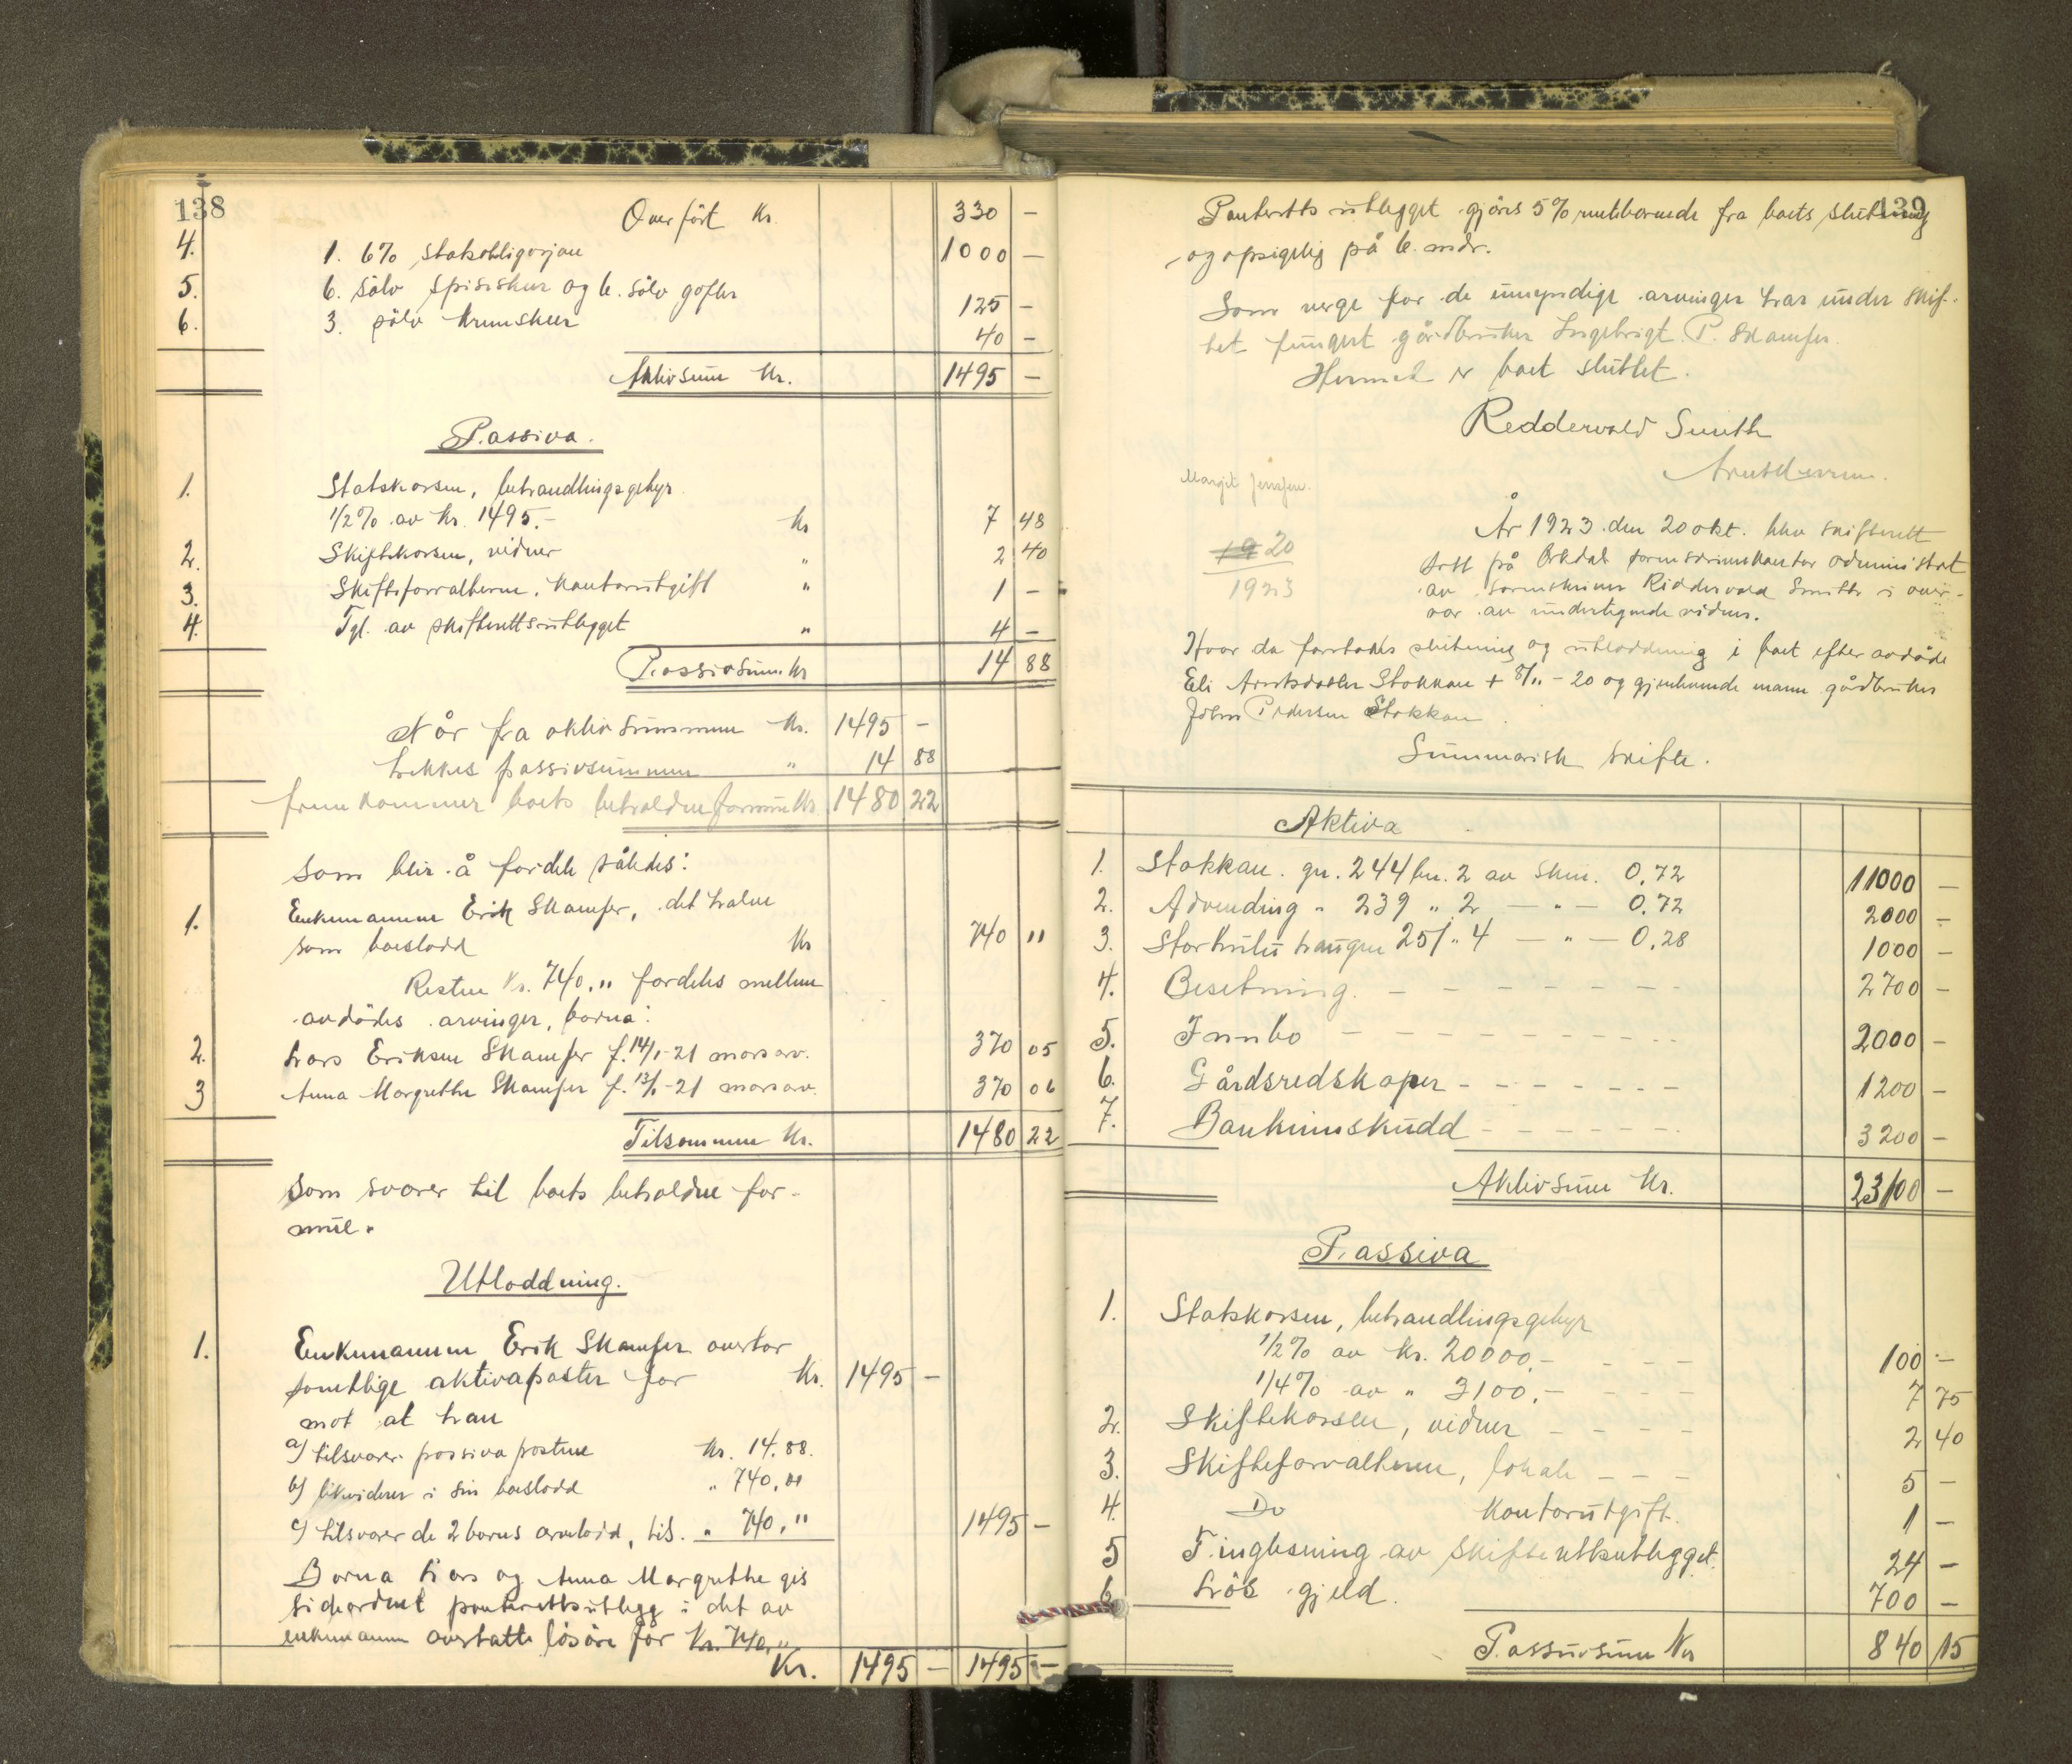 138
Overført Kr. 330 –
4. 1. 6% statsobligasjon 1000 –
5. 6. sølv spiseskeer og 6. sølv gafler 125 –
6. 3. sølv kremskeer 40 –
Aktivsum Kr. 1495 –
Passiva.
1. Statskassen, behandlingsgebyr
1/2% av kr. 1495.– kr 7 48
2. Skiftekassen, vidner " 2 40
3. Skifteforvalteren, kontorutgift " 1 –
4. Tgl. av skifterettsutlegget " 4 –
Passivsum kr 14 88
Når fra aktivsummen Kr. 1495 –
trekkes passivsummen " 14 88
fremkommer boets beholdne formue Kr 1480 22
som blir å fordele således:
1. Enkemannen Erik Skamfer, det halve
som boeslodd Kr 740 11
Resten Kr. 740,11 fordeles mellem
avdødes arvinger, barna:
2. Lars Eriksen Skamfer f. 14/1-21 morsarv. 370 05
3 Anna Margrethe Skamfer f. 13/1-21 morsarv. 370 06
Tilsammen Kr. 1480 22
som svarer til boets beholdne for-
mue.
Utloddning.
1. Enkemannen Erik Skamfer overtar
samtlige aktivaposter for Kr. 1495 –
mot at han
a) tilsvarer passivapostene Kr. 14.88.
b) likviderer i sin boeslodd " 740,01
c) tilsvarer de 2 barns arvelodd, tils. " 740,11 1495 –
Barna Lars og Anna Margrethe gis
sideordnet panterettsutlegg i det av
enkemannen overtatte løsøre for Kr. 740,11
Kr. 1495 – 1495 –
139
Panteretts utlegget gjøres 5% rentebærende fra boets slutning
og opsigelig på 6. mdr.
Som verge for de umyndige arvinger har under skif-
tet fungert gårdbruker Ingebrigt P. Skamfer.
Hermed er boet sluttet.
Reddervold Smith
Margit Jenssen.
20
1923
År 1923 den 20 okt. blev skifterett
satt på Orkdal sorenskriverkontor administrert
av sorenskriver Riddervold Smith i over-
vær av undertegnede vidner.
Hvor da foretokes slutning og utloddning i boet efter avdøde
Eli Arntsdatter Stokkan + 8/11 – 20 og gjenlevende mann gårdbruker
John Pedersen Stokkan
Summarisk skifte.
Aktiva
1. Stokkan. gn. 244 bn. 2 av skm. 0,72 11000 –
2. Advending " 239 " 2 – " – 0,72 2000 –
3. 251 " 4 – " – 0,28 1000 –
4. Besetning. – – – – – – – 2700 –
5. Innbo – – – – – – – 2000 –
6. Gårdsredskaper – – – – – – – 1200 –
7. Bankinnskudd – – – – – – 3200 –
Aktivsum Kr. 23100 –
Passiva
1. Statskassen, behandlingsgebyr
1/2% av kr. 20000.– – – – 100 –
1/4% av " 3100.– – – – 7 75
2. Skiftekassen, vidner – – – – 2 40
3. Skifteforvalteren, lokale – – – 5 –
4. Do kontorutgift. 1 –
5 Tinglesning av skifterettsutlegget. 24 –
6. Løs gjeld. 700 –
Passivsum Kr 840 15